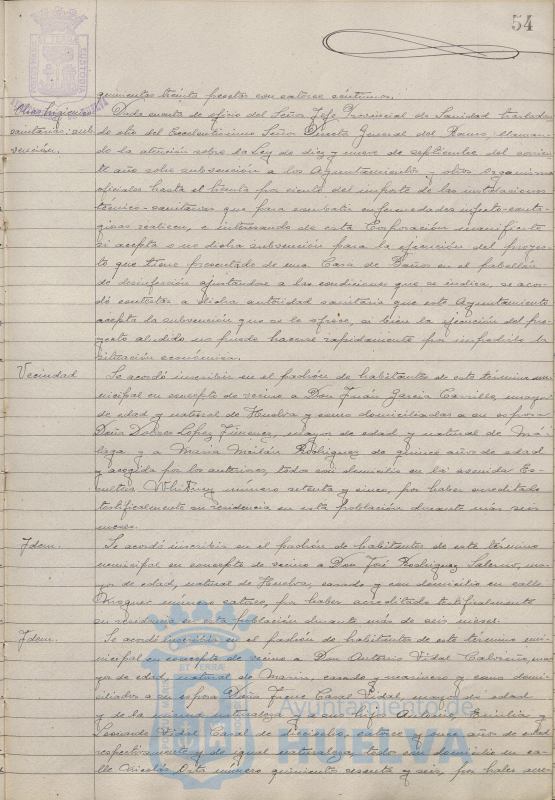 54
quinientas treinta pesetas con catorce céntimos.
Obras higiénico
sanitarias: sub
vención.
Dada cuenta de oficio del Señor Jefe Provincial de Sanidad trasladan
do otro del Excelentísimo Señor Director General del Ramo, llaman
do la atención sobre la Ley de diez y nueve de septiembre del corrien
te año sobre subvención a los Ayuntamientos y otros organismos
oficiales hasta el treinta por ciento del importe de las instalaciones
técnico-sanitarias que para combatir enfermedades infecto-conta
giosas realicen, e interesando de esta Corporación manifieste
si acepta o no dicha subvención para la ejecución del proyec
to que tiene presentado de una Casa de Baños en el pabellón
de desinfección ajustándose a las condiciones que se indica, se acor
dó contestar a dicha autoridad sanitaria que este Ayuntamiento
acepta la subvención que se le ofrece, si bien la ejecución del pro
yecto aludido no puede hacerse rapidamente por impedirlo la
situación económica.
Vecindad
Se acordó inscribir en el padrón de habitantes de este término mu
nicipal en concepto de vecino a Don Juan García Carrillo, mayor
de edad y natural de Huelva y como domiciliadas a su esposa
Doña Dolores López Jimenez, mayor de edad y natural de Má
laga y a María Milán Rodriguez de quince años de edad
y acogida por los anteriores, todos con domicilio en la avenida Es
cultora Whitney número setenta y cinco, por haber acreditado
testificalmente su residencia en esta población durante más seis
meses.
Idem.
Se acordó inscribir en el padrón de habitantes de este término
municipal en concepto de vecino a Don José Rodriguez Salerno, ma
yor de edad, natural de Huelva, casado y con domicilio en calle
Moguer número catorce, por haber acreditado testificalmente
su residencia en esta población durante más de seis meses.
Idem.
Se acordó inscribir en el padrón de habitantes de este término mu
nicipal en concepto de vecino a Don Antonio Vidal ma
yor de edad, natural de Marín, casado y marinero y como domi
ciliados a su esposa Doña Irene Casal Vidal, mayor de edad
y de la misma naturaleza y a sus hijos Antonio, Emilia y
Vidal Casal de dieciocho, catorce y nueve años de edad
respectivamente y de igual naturaleza, todos con domicilio en ca
lle Nicolás Orta número quinientos sesenta y seis, por haber acre
Ayuntamiento de
HUELVA